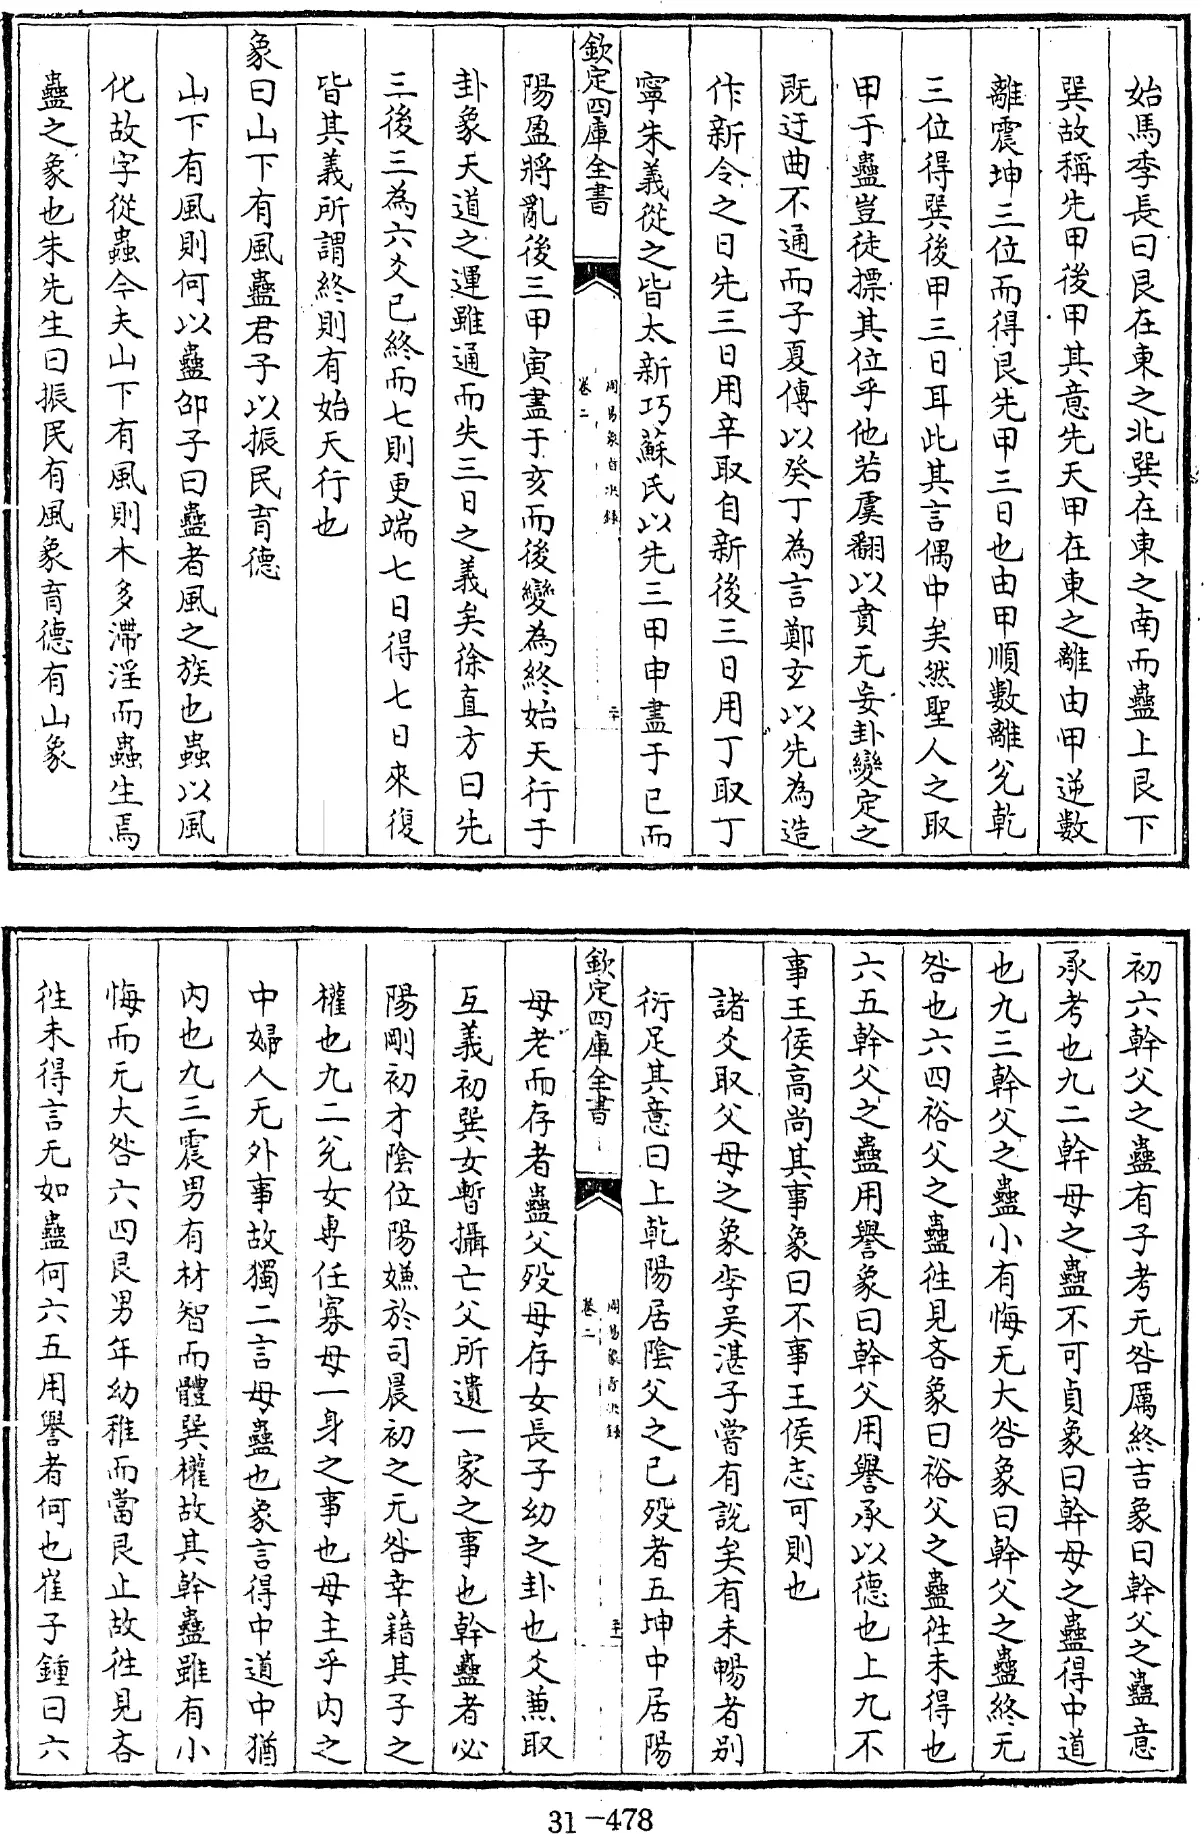 始馬季長曰艮在東之北巽在東之南而蠱上艮下
巽故稱先甲後甲其意先天甲在東之離由甲逆數
離震坤三位而得艮先甲三日也由甲順數離兊乾
三位得巽後甲三日耳此其言偶中矣然聖人之取
甲于蠱豈徒摽其位乎他若虞翻以賁无妄卦變定之
既迂曲不通而子夏傳以癸丁為言鄭玄以先為造
作新令之日先三日用辛取自新後三日用丁取丁
寧朱義從之皆太新巧蘇氏以先三甲申盡于巳而
欽定四庫全書
周易象旨決錄
卷二
二十
陽盈將亂後三甲寅盡于亥而後變為終始天行于
卦象天道之運雖通而失三日之義矣徐直方曰先
三後三為六爻已終而七則更端七日得七日來復
皆其義所謂終則有始天行也
象曰山下有風蠱君子以振民育德
山下有風則何以蠱邵子曰蠱者風之族也蟲以風
化故字從蟲今夫山下有風則木多滯淫而蟲生焉
蠱之象也朱先生曰振民有風象育德有山象
初六幹父之蠱有子考无咎厲終吉象曰幹父之蠱意
承考也九二幹母之蠱不可貞象曰幹母之蠱得中道
也九三幹父之蠱小有悔无大咎象曰幹父之蠱終无
咎也六四裕父之蠱徃見吝象曰裕父之蠱徃未得也
六五幹父之蠱用譽象曰幹父用譽承以德也上九不
事王侯高尚其事象曰不事王侯志可則也
諸爻取父母之象李吴湛子嘗有說矣有未暢者别
衍足其意曰上乾陽居陰父之已殁者五坤中居陽
欽定四庫全書
周易象旨決錄
卷二
母老而存者蠱父殁母存女長子幼之卦也爻兼取
互義初巽女暫攝亡父所遺一家之事也幹蠱者必
陽剛初才陰位陽嫌於司晨初之元咎幸藉其子之
權也九二兊女専任寡母一身之事也母主乎内之
中婦人无外事故獨二言母蠱也象言得中道中猶
内也九三震男有材智而體巽權故其幹蠱雖有小
悔而无大咎六四艮男年幼稚而當艮止故徃見吝
徃未得言无如蠱何六五用譽者何也崔子鍾曰六
31-478